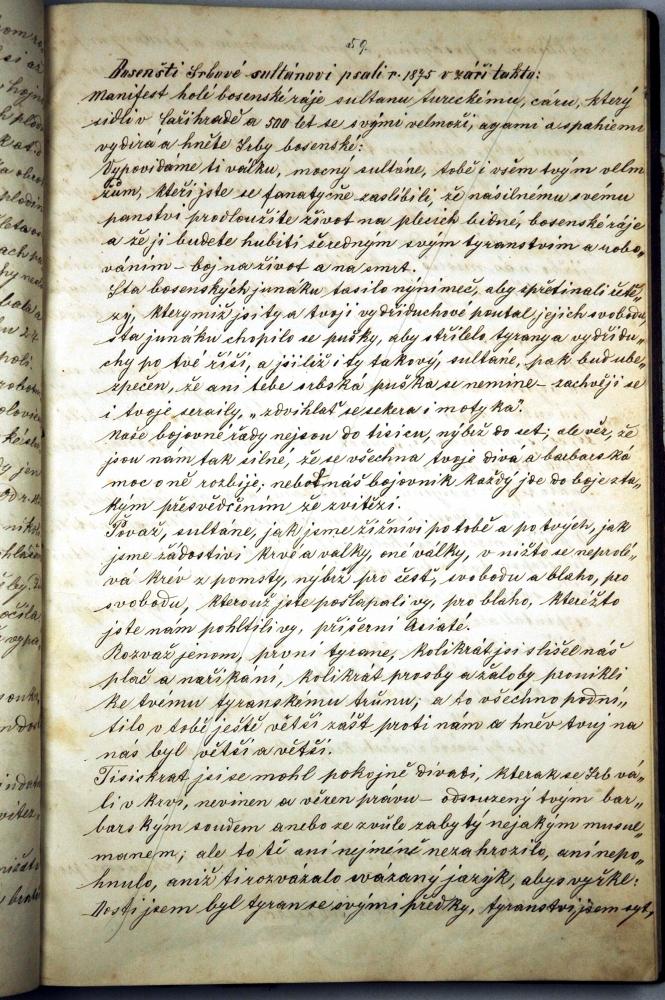 59.
Bosenští Srbové sultánovi psali r. 1875 v září takto:
Manifest holé bosenské ráje sultanu tureckému, cáru, který
sídlí v Cařihradě a 500 let se svými velmoži, agami a spahiemi
vydírá a hněte Srby bosenské:
Vypovídáme ti válku, mocný sultáne, tobě i všem tvým velm
žům, kteří jste se fanatyčně zaslíbili, že násilnému svému
panství prodloužíte život na plecích bídné, bosenské ráje
a že ji budete hubiti šeredným svým tyranstvím a robo„
váním – boj na život a na smrt.
Sta bosenských junáku tasilo nyní meč, aby spřetínali řetě„
zy, kterýmiž jsi ty a tvoji vydřiduchové poutal jejich svobodu,
sta junáku chopilo se pušky, aby střílelo tyrany a vydřidu„
chy po tvé říši, a jsi liž i ty takový, sultáne, pak buď ube„
zpečen, že ani tebe srbská puška su nemine – zachvějí se
i tvoje seraily, „zdvihlať se sekera i motyka".
Naše bojovné řady nejsou do tisícu, nýbrž do set; ale věz, že
jsou nám tak silné, že se všechna tvoje divá a barbarská
moc o ně rozbije; neboť náš bojovník každý jde do boje s ta„
kým přesvědčením že zvítězí.
Považ, sultáne, jak jsme žížniví po tobě a po tvých, jak
jsme žádostivi krve a války, oné války, v nížto se neprolé„
vá krev z pomsty, nýbrž pro čest, svobodu a blaho, pro
svobodu, kterouž jste pošlapali vy, pro blaho, kteréžto
jste nám pohltili vy, příšerní Asiaté.
Rozvaž jenom, první tyrane, kolikrát jsi slišel náš
pláč a naříkání, kolikrát prosby a žaloby pronikli
ke tvému tyranskému trůnu; a to všechno podní„
tilo v tobě ještě větší zášť proti nám a hněv tvuj na
nás byl větší a větší.
Tisíckrat jsi se mohl pokojně dívati, kterak se Srb vá„
lí v krvi, nevinen su věren právu – odsouzený tvým bar„
barským soudem anebo ze zvůle zabytý nejakým musul„
manem; ale to tě ani nejméně nezahrozilo, ani nepo„
hnulo, aniž ti rozvázalo svázaný jazyk, abys vyřkl:
Dosti jsem byl tyran se svými předky, tyranství jsem syt,